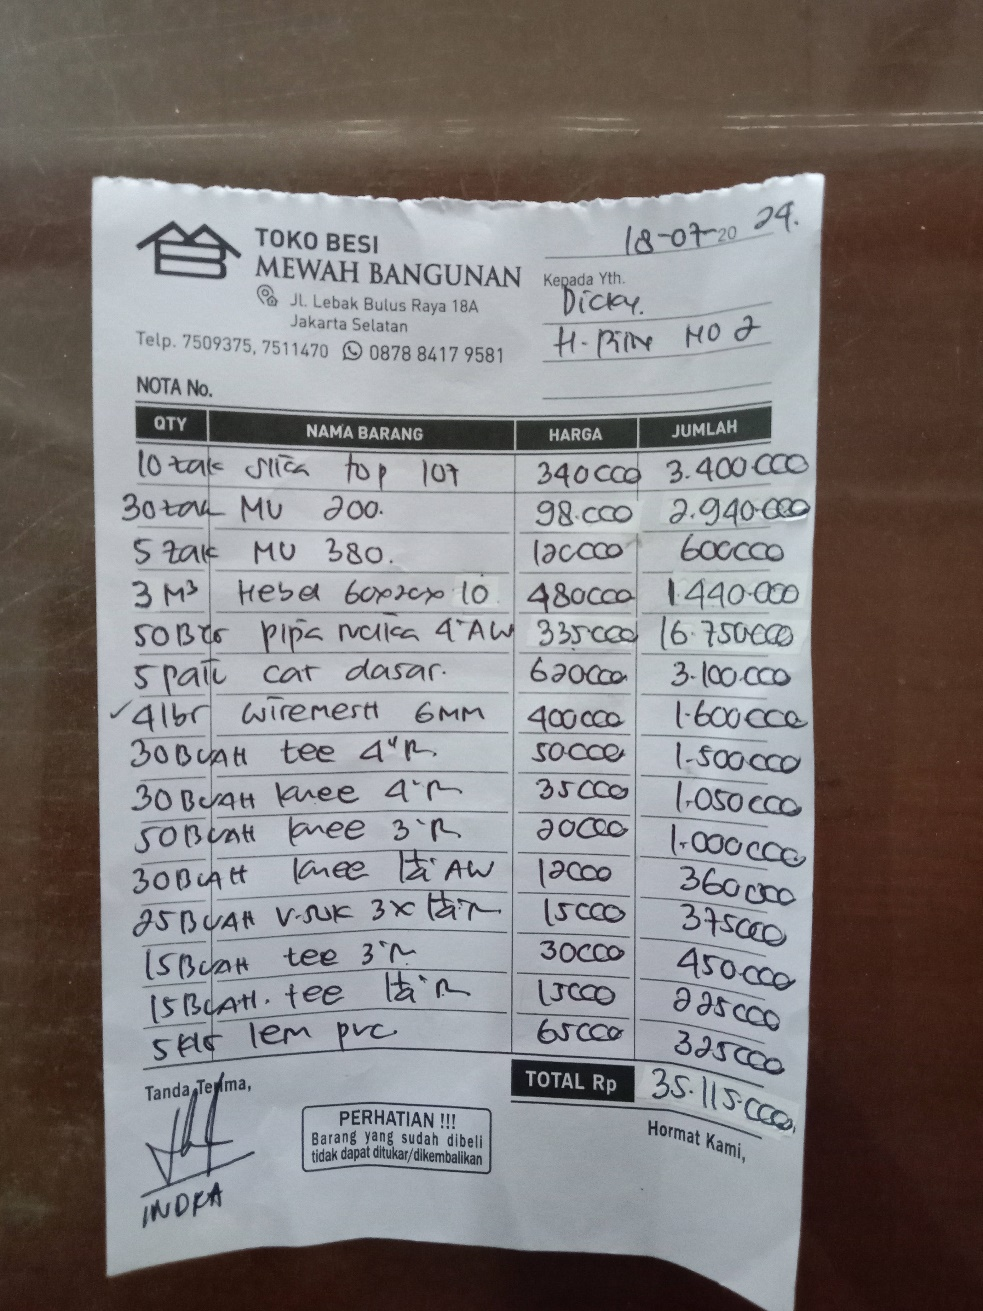 TOKO BESI
MEWAH BANGUNAN
Jl. Lebak Bulus Raya 18A
Jakarta Selatan
Telp. 7509375, 7511470 0878 8417 9581
18-07-20 24.
Kepada Yth.
Dicky.
H. NO 2
NOTA No.
QTY NAMA BARANG HARGA JUMLAH
10 zak sika top 107 340000 3.400.000
30 zak MU 200. 98.000 2.940.000
5 zak MU 380. 120000 600000
3 M³ Hebel 60x20x 10 480000 1.440.000
50 Btg pipa rucika 4" AW 335000 16.750000
5 pail cat dasar. 620000 3.100.000
✓ 4 lbr wiremesH 6MM 400000 1.600000
30 BUAH tee 4" R. 50000 1.500000
30 BUAH knee 4" R 35000 1.050000
50 BUAH knee 3" R 20000 1.000000
30 BUAH knee 1½" AW 12000 360000
25 BUAH V.SOK 3x1½" R 15000 375000
15 BUAH tee 3" R 30000 450.000
15 BUAH. tee 1½" R 15000 225000
5 klg lem pvc 65000 325000
TOTAL Rp 35.115.000
Tanda Terima,
Hormat Kami,
PERHATIAN !!!
Barang yang sudah dibeli
tidak dapat ditukar/dikembalikan
INDRA